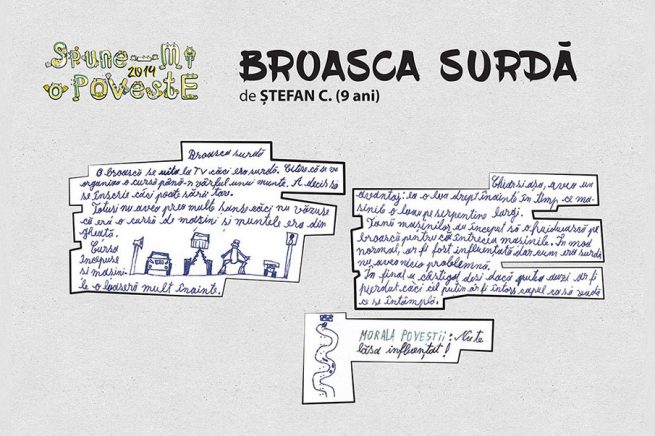 Spune-mi
2019
o poveste
BROASCA SURDĂ
de ȘTEFAN C. (9 ani)
Broasca surdă
O broască se uita la TV căci era surdă. Citise că se va
organiza o cursă până-n vârful unui munte. A decis să
se înscrie căci poate sări tare.
Totuși nu avea prea multe șanse căci nu văzuse
că era o cursă de mașini și muntele era din
gheață.
Cursa
începuse
și mașini-
le o luaseră mult înainte.
Chiar și așa, avea un
avantaj: ea o lua drept înainte în timp ce ma-
șinile o luau pe serpentine largi.
Fanii mașinilor au început să o huiduiască pe
broască pentru că întrecea mașinile. În mod
normal, ar fi fost influențată dar cum era surdă
nu avea nicio problemă.
În final a câștigat deși dacă putea auzi ar fi
pierdut căci cel puțin ar fi întors capul ca să vadă
ce se întâmplă.
MORALA POVEȘTII: Nu te
lăsa influențat!